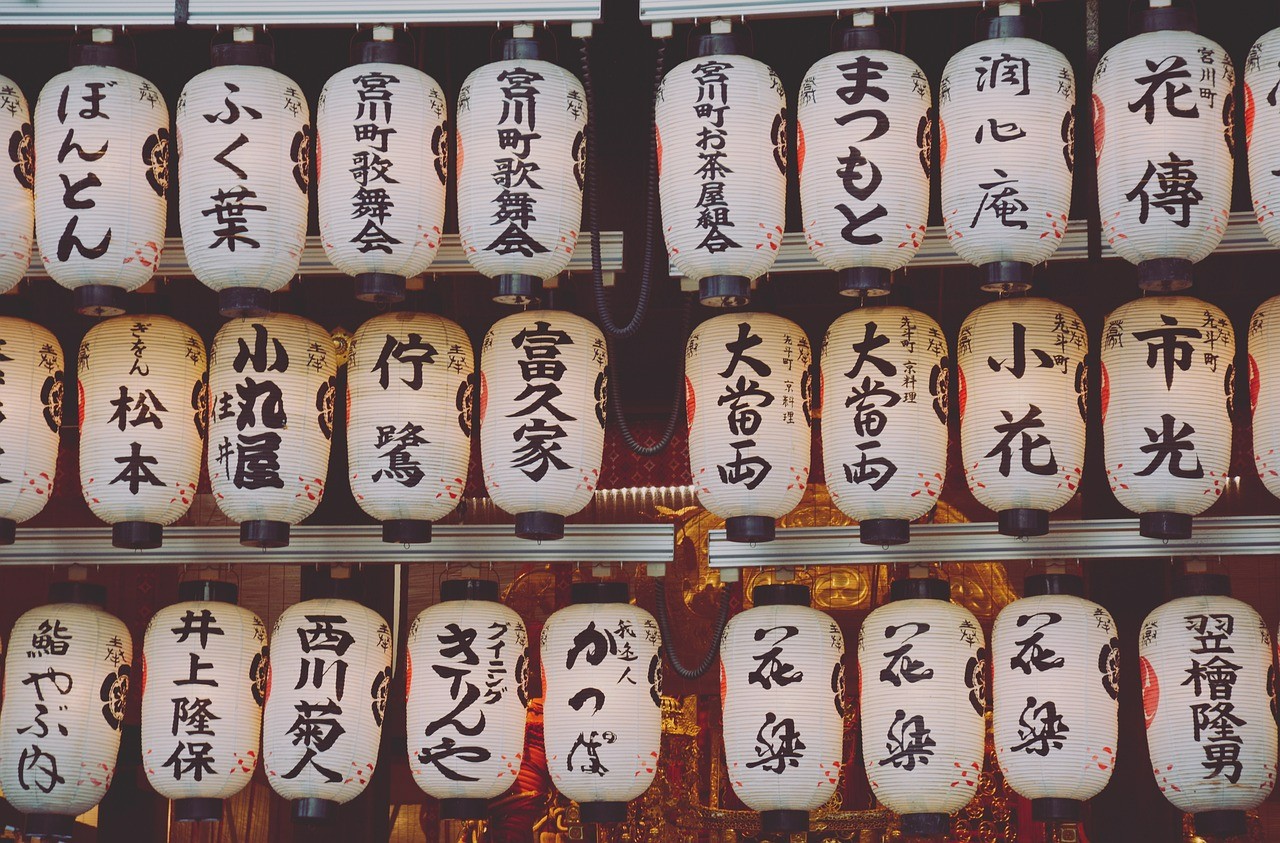 ぼんとん
ふく葉
宮川町歌舞会
宮川町歌舞会
宮川町お茶屋組合
まつもと
潤心庵
宮川町
花傳
ぎをん
松本
小丸屋
住井
佇鷺
富久家
先斗町 京料理
大當両
先斗町 京料理
大當両
先斗町
小花
先斗町
市光
鮨やぶ内
井上隆保
西川菊人
ダイニング
きりんや
我逢人
花梁
花梁
花梁
翌檜隆男